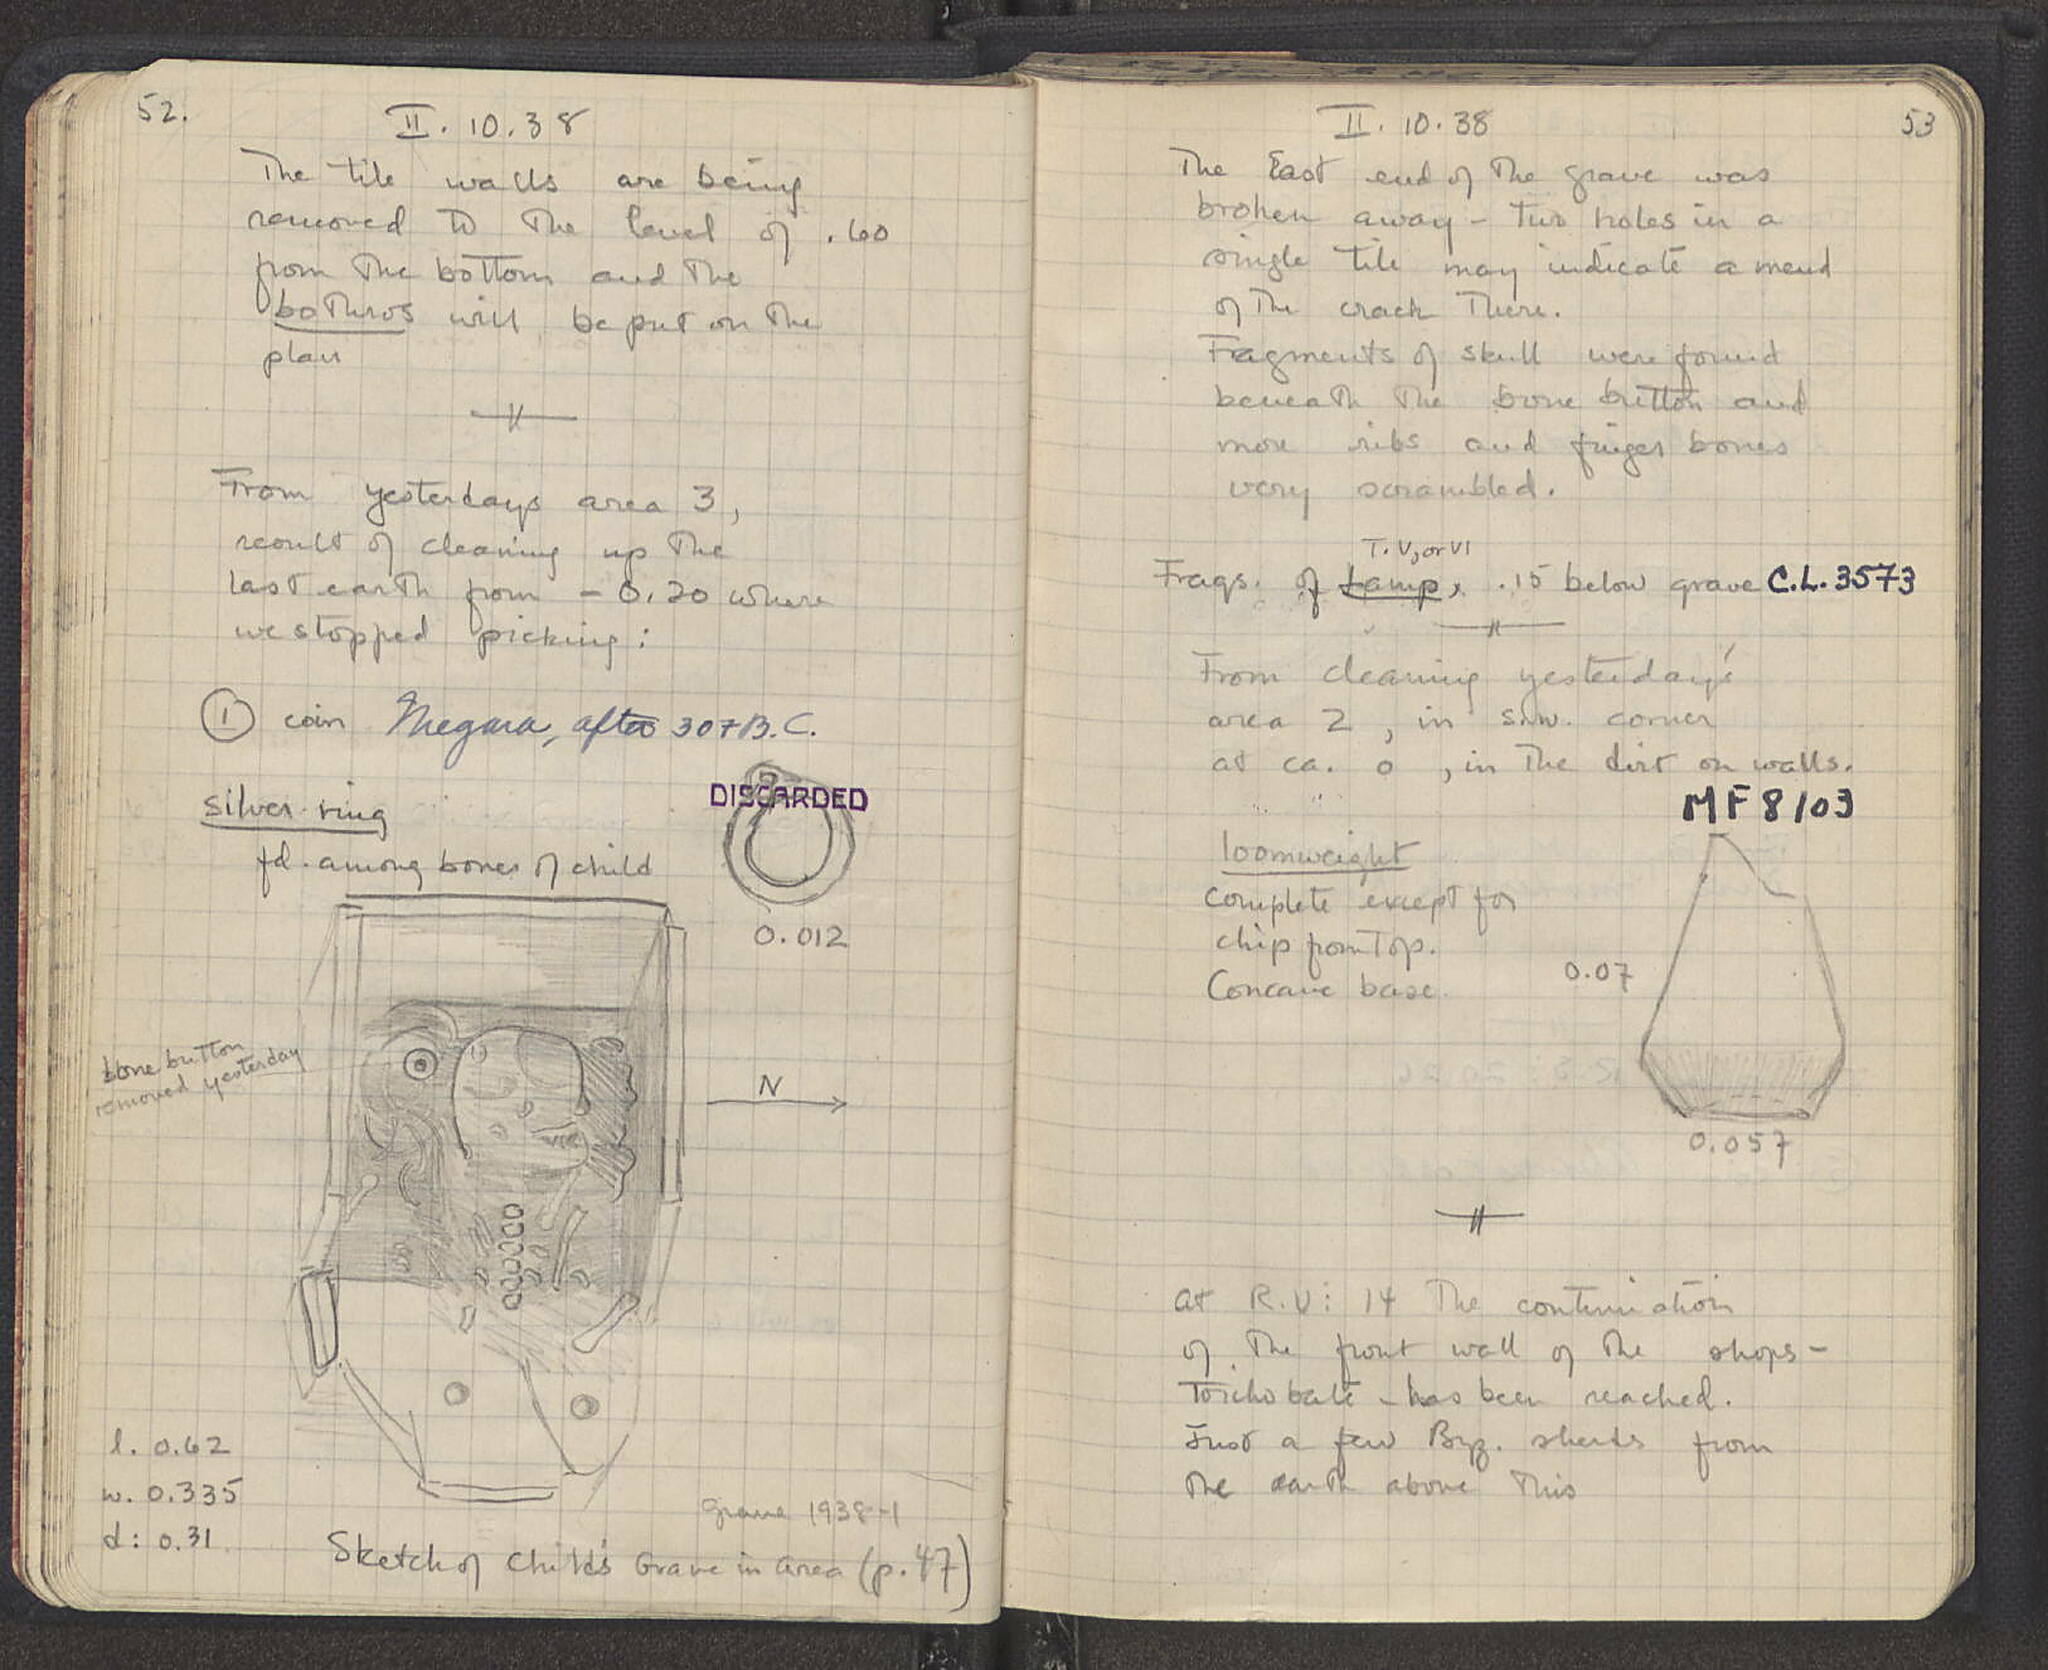 52.
II. 10.38
The tile walls are being
removed to the level of .60
from the bottom and the
bothros will be put on the
plan
From yesterdays area 3,
result of cleaning up the
last earth from - 0.20 where
we stopped picking:
1 coin Megara, after 307 B.C.
silver ring
DISCARDED
fd. among bones of child
0.012
bone button
removed yesterday
N
l. 0.62
w. 0.335
d: 0.31
Grave 1938-1
Sketch of Child's Grave in area (p. 47)
II. 10.38
53
The East end of the grave was
broken away - two holes in a
single tile may indicate a mend
of the crack there.
Fragments of skull were found
beneath the bone button and
more ribs and finger bones
very scrambled.
T. V, or VI
Frags. of Lamp, .15 below grave C.L. 3573
From cleaning yesterday's
area 2, in S.W. corner
at ca. 0, in the dirt on walls.
MF 8103
loomweight
Complete except for
chip from top.
Concave base.
0.07
0.057
At R.V: 14 the continuation
of the front wall of the shops -
Toichobate - has been reached.
Just a few Byz. sherds from
the earth above this